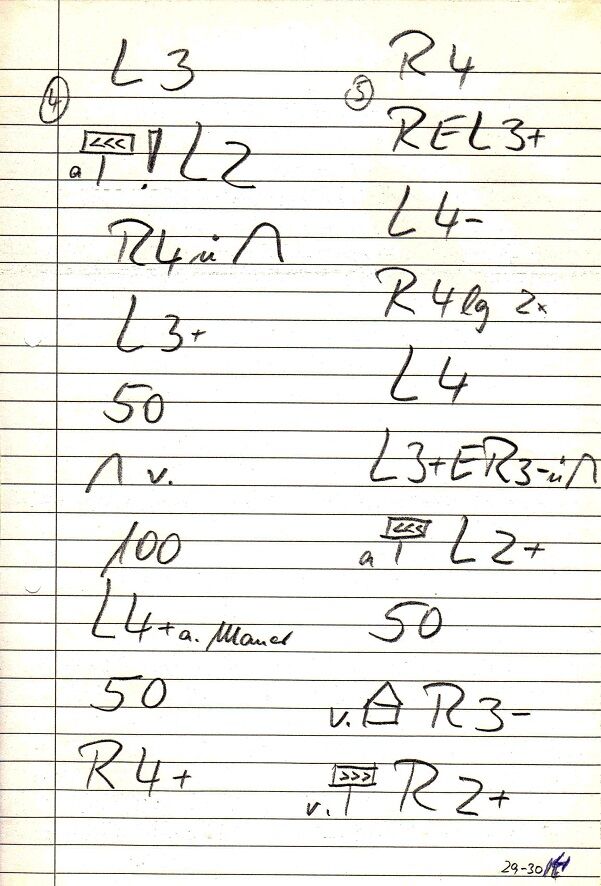 ④
L 3
a <<< ! L 2
R 4 ü ∩
L 3+
50
∩ v.
100
L 4+ a.
50
R 4+
⑤
R 4
R E L 3+
L 4-
R 4 lg 2x
L 4
L 3+ E R 3- ü ∩
a <<< L 2+
50
v. R 3-
v. >>> R 2+
29-30